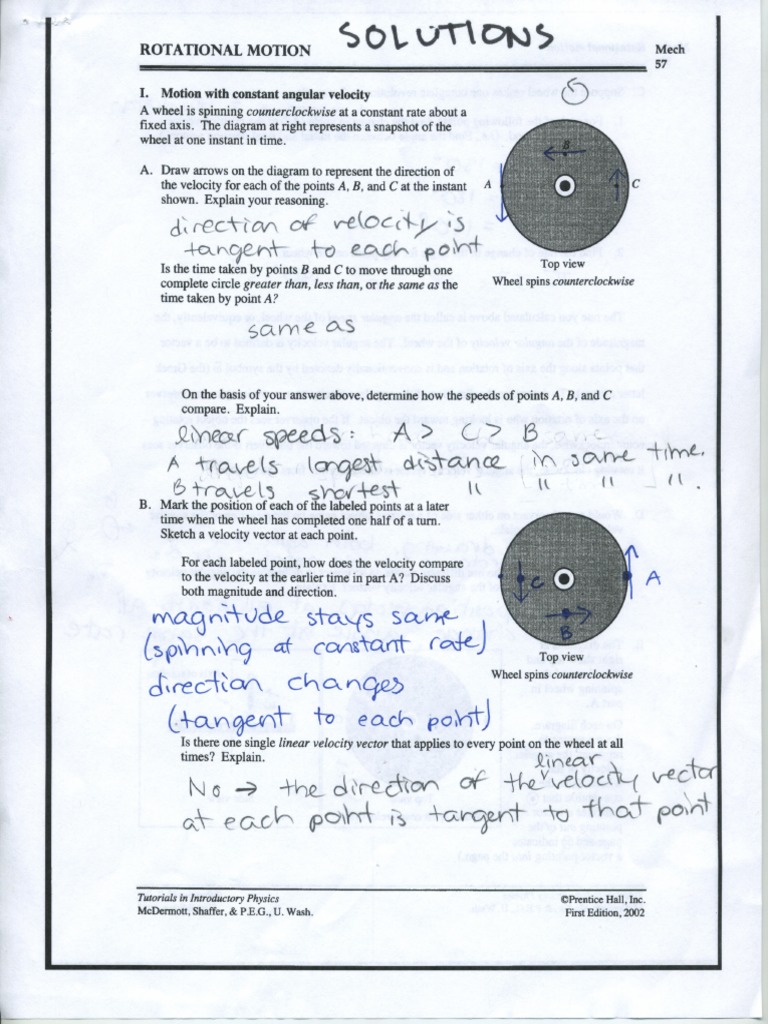 SOLUTIONS
ROTATIONAL MOTION
Mech
57
I. Motion with constant angular velocity
A wheel is spinning counterclockwise at a constant rate about a
fixed axis. The diagram at right represents a snapshot of the
wheel at one instant in time.
A. Draw arrows on the diagram to represent the direction of
the velocity for each of the points A, B, and C at the instant
shown. Explain your reasoning.
B
A
C
direction of velocity is
tangent to each point
Top view
Wheel spins counterclockwise
Is the time taken by points B and C to move through one
complete circle greater than, less than, or the same as the
time taken by point A?
same as
On the basis of your answer above, determine how the speeds of points A, B, and C
compare. Explain.
linear speeds: A > C > B
A travels longest distance in same time.
B travels shortest " " " ".
B. Mark the position of each of the labeled points at a later
time when the wheel has completed one half of a turn.
Sketch a velocity vector at each point.
For each labeled point, how does the velocity compare
to the velocity at the earlier time in part A? Discuss
both magnitude and direction.
C
A
B
magnitude stays same
(spinning at constant rate)
direction changes
(tangent to each point)
Top view
Wheel spins counterclockwise
Is there one single linear velocity vector that applies to every point on the wheel at all
times? Explain.
linear
No → the direction of the velocity vector
at each point is tangent to that point
Tutorials in Introductory Physics
McDermott, Shaffer, & P.E.G., U. Wash.
©Prentice Hall, Inc.
First Edition, 2002